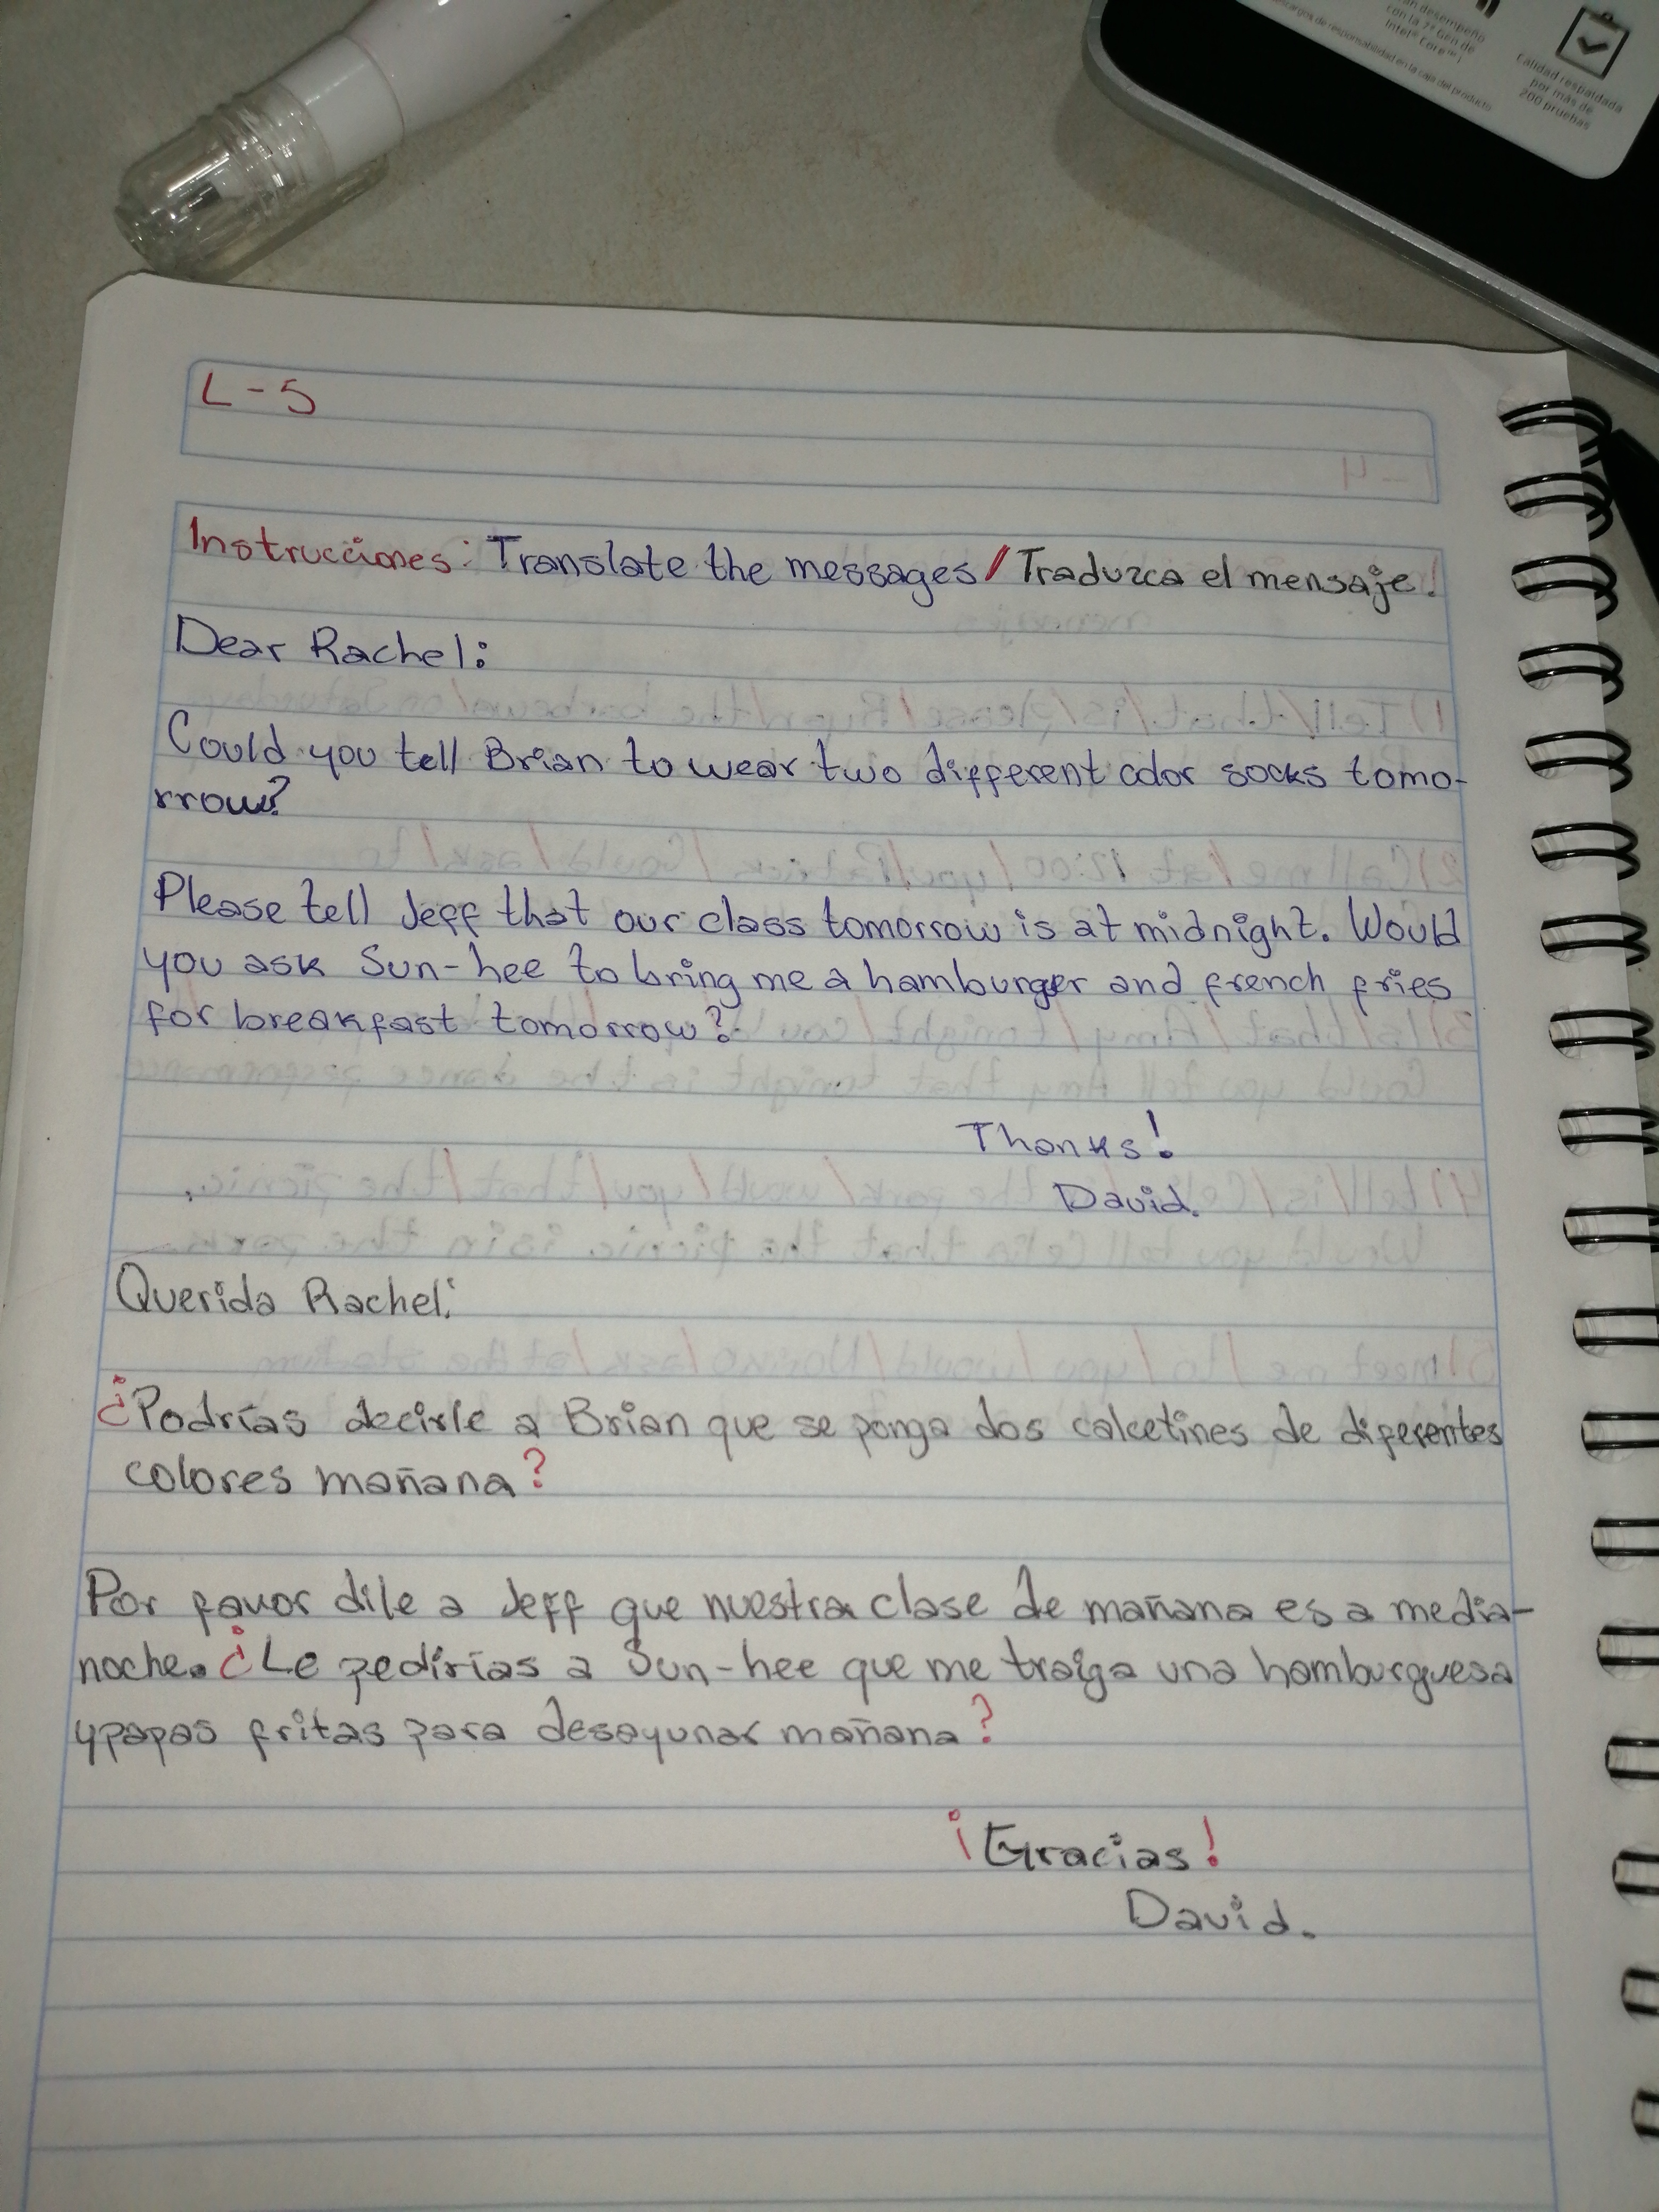 an desempeño
con la 7ª Gen de
Intel® Core™ i
calidad respaldada
por más de
200 pruebas
cargos de responsabilidad en la caja del producto
L-5
Instrucciones: Translate the messages / Traduzca el mensaje.
Dear Rachel:
Could you tell Brian to wear two different color socks tomo-
rrow?
Please tell Jeff that our class tomorrow is at midnight. Would
you ask Sun-hee to bring me a hamburger and french fries
for breakfast tomorrow?
Thanks!
David.
Querida Rachel:
¿Podrías decirle a Brian que se ponga dos calcetines de diferentes
colores mañana?
Por favor dile a Jeff que nuestra clase de mañana es a media-
noche. ¿Le pedirías a Sun-hee que me traiga una hamburguesa
y papas fritas para desayunar mañana?
¡Gracias!
David.